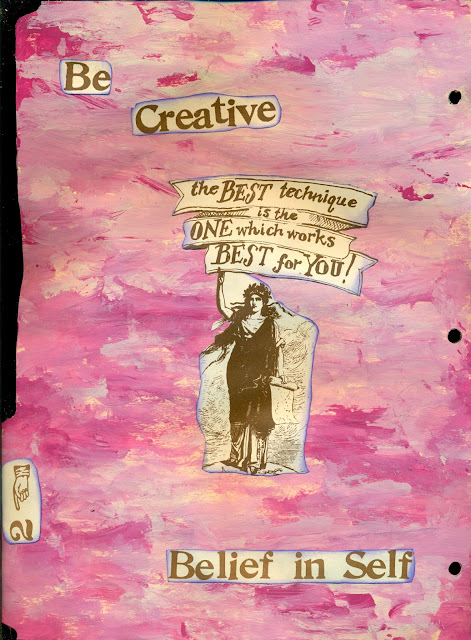 Be
Creative
the BEST technique
is the
ONE which works
BEST for YOU!
2
Belief in Self